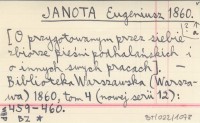 JANOTA Eugeniusz 1860.
[O przygotowanym przez siebie
zbiorze pieśni podhalańskich i
o innych swych pracach]. —
Biblioteka Warszawska (Warsza-
wa) 1860, tom 4 (nowej serii 12):
459-460.
BZ *